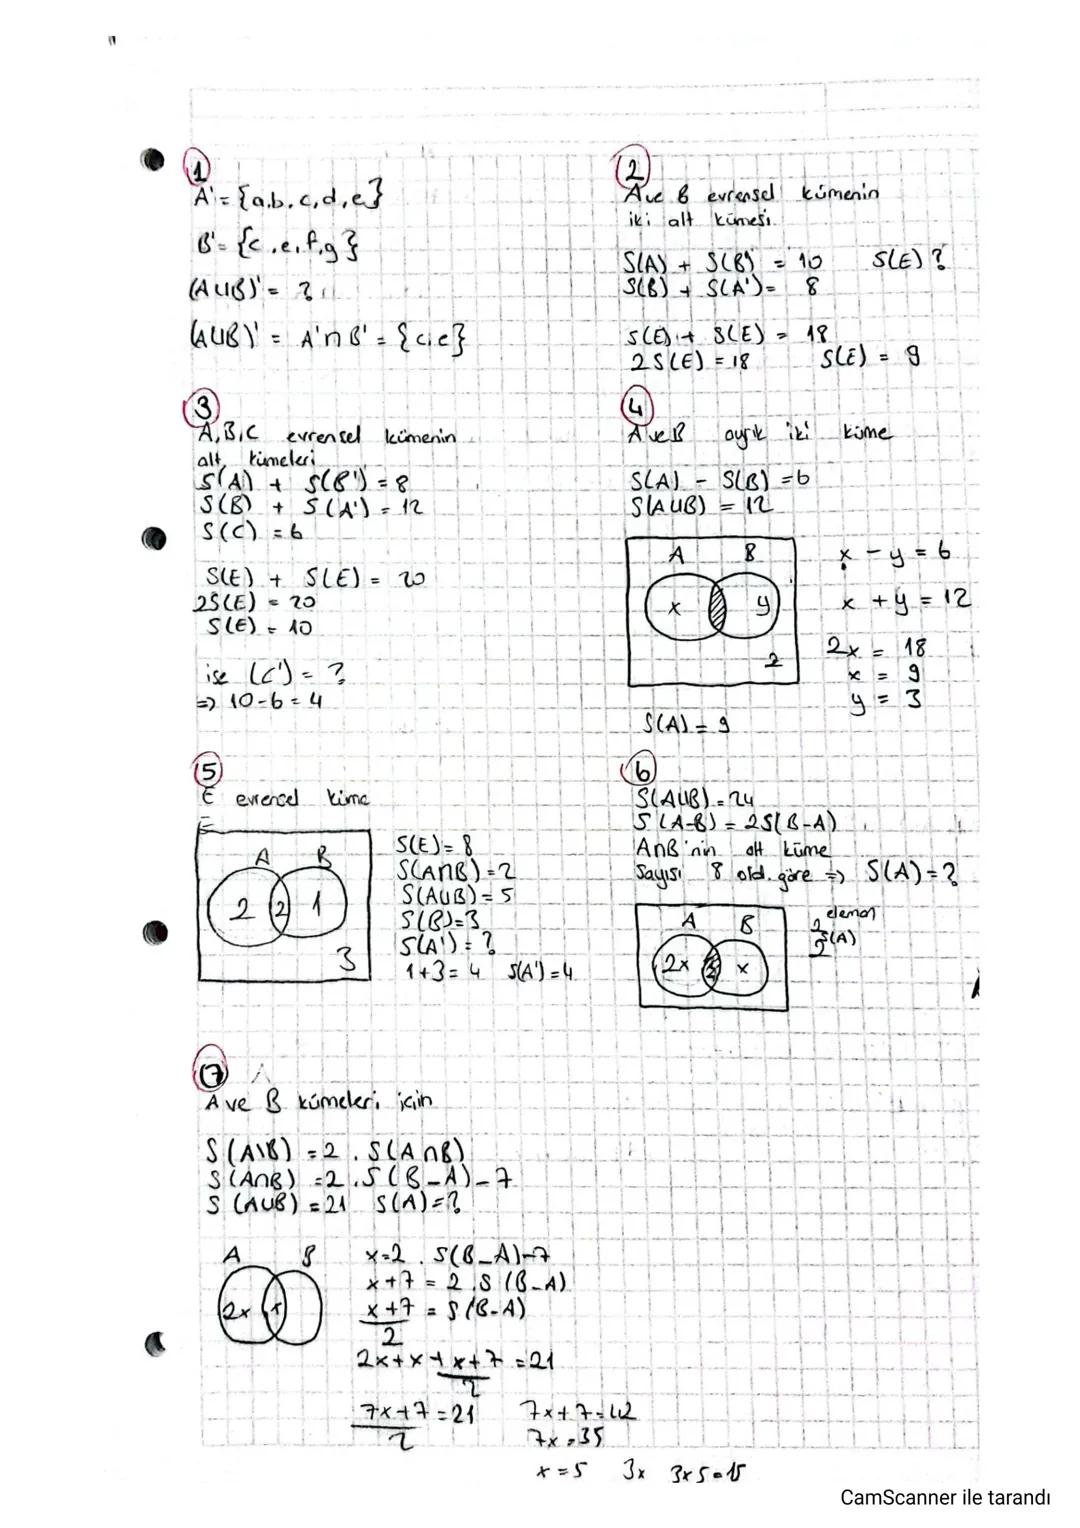 1
A' = {a,b,c,d,e}
B' = {c,e,f,g}
(A∪B)' = ?
(A∪B)' = A'∩B' = {c,e}
2
A ve B evrensel kümenin
iki alt kümesi
S(A) + S(B)' = 10 S(E)?
S(B) + S(A') = 8
S(E) + S(E) = 18
2S(E) = 18 S(E) = 9
3
A,B,C evrensel kümenin
alt kümeleri
S(A) + S(B') = 8
S(B) + S(A') = 12
S(C) = 6
S(E) + S(E) = 20
2S(E) = 20
S(E) = 10
ise (C') = ?
=> 10-6 = 4
4
A ve B ayrık iki küme
S(A) - S(B) = 6
S(A∪B) = 12
A B
x y
2
x - y = 6
x + y = 12
2x = 18
x = 9
y = 3
S(A) = 9
5
E evrensel küme
E
A B
2 2 1
3
S(E) = 8
S(A∩B) = 2
S(A∪B) = 5
S(B) = 3
S(A') = ?
1+3 = 4 S(A') = 4
6
S(A∪B) = 24
S(A-B) = 2S(B-A)
A∩B'nin alt küme
sayısı 8 old. göre => S(A) = ?
A B
2x x
eleman
S(A)
7
A ve B kümeleri için
S(A\B) = 2 . S(A∩B)
S(A∩B) = 2 . S(B-A) - 7
S(A∪B) = 21 S(A) = ?
A B
2x x
x = 2 . S(B-A) - 7
x + 7 = 2 . S(B-A)
x+7 = S(B-A)
2
2x + x + x+7 = 21
2
7x+7 = 21 7x + 7 = 42
2 7x = 35
x = 5 3x 3x5 = 15
CamScanner ile tarandı